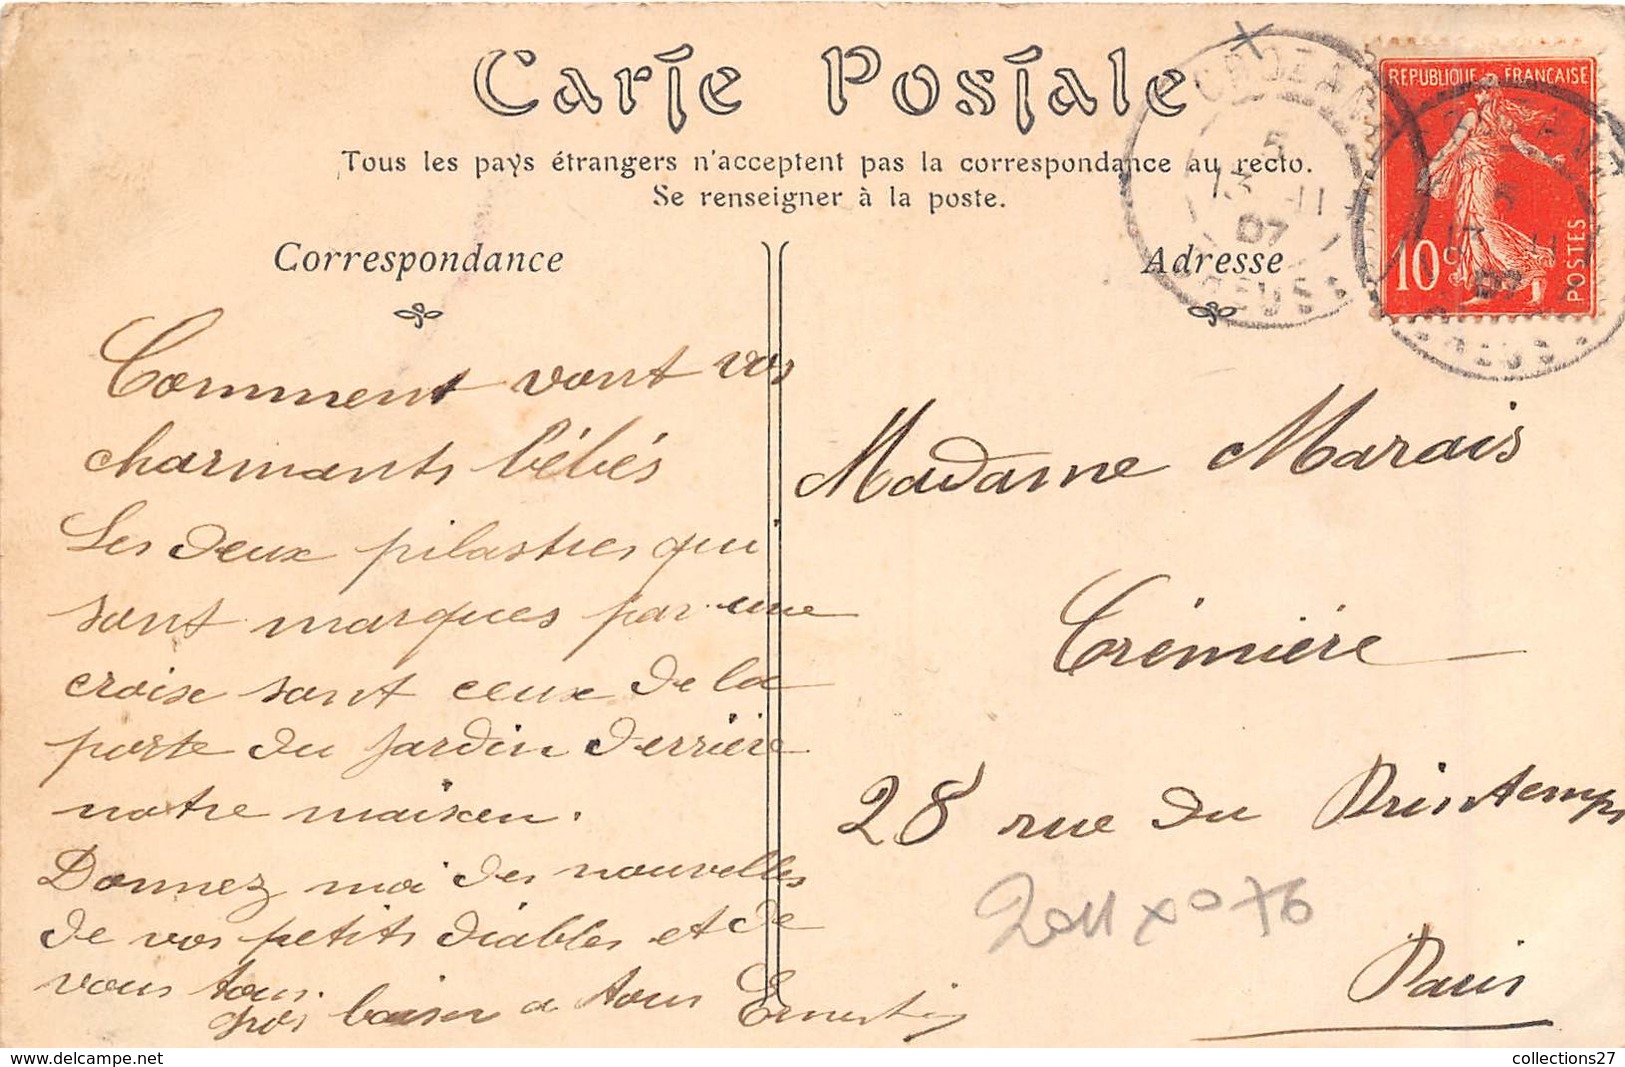 Carte Postale
Tous les pays étrangers n'acceptent pas la correspondance au recto.
Se renseigner à la poste.
Correspondance
Adresse
REPUBLIQUE FRANÇAISE
10 c
POSTES
5
13 11
07
CREUSE
5
13 11
07
CREUSE
Comment vont vos
charmants bébés
Les deux pilastres qui
sont marques par une
croise sont ceux de la
porte du jardin derrière
notre maison.
Donnez moi des nouvelles
de vos petits diables et de
vous tous.
gros baiser a tous
Madame Marais
Crémière
28 rue du Printemps
Paris
collections27